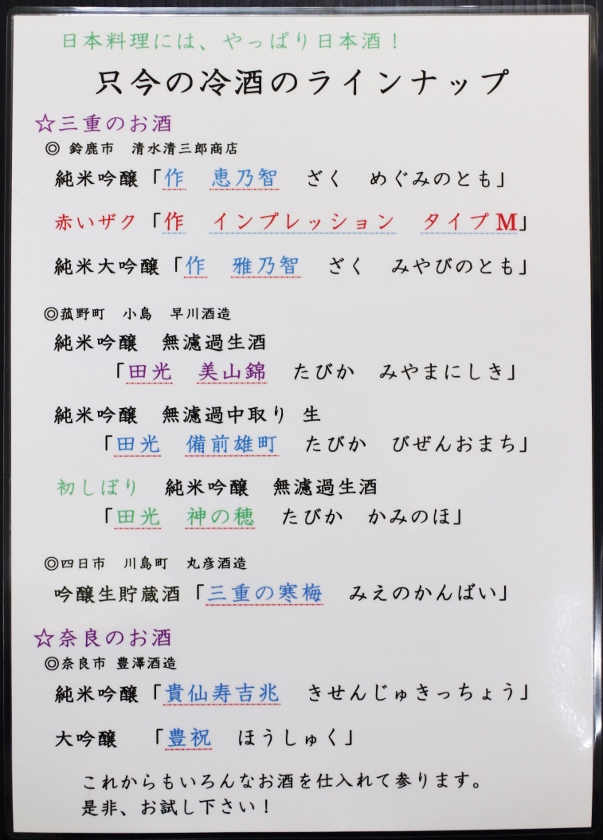 日本料理には、やっぱり日本酒！
只今の冷酒のラインナップ
☆三重のお酒
◎ 鈴鹿市　清水清三郎商店
純米吟醸「作　恵乃智　ざく　めぐみのとも」
赤いザク「作　インプレッション　タイプM」
純米大吟醸「作　雅乃智　ざく　みやびのとも」
◎菰野町　小島　早川酒造
純米吟醸　無濾過生酒
「田光　美山錦　たびか　みやまにしき」
純米吟醸　無濾過中取り 生
「田光　備前雄町　たびか　びぜんおまち」
初しぼり　純米吟醸　無濾過生酒
「田光　神の穂　たびか　かみのほ」
◎四日市　川島町　丸彦酒造
吟醸生貯蔵酒「三重の寒梅　みえのかんばい」
☆奈良のお酒
◎奈良市 豊澤酒造
純米吟醸「貴仙寿吉兆　きせんじゅきっちょう」
大吟醸　「豊祝　ほうしゅく」
これからもいろんなお酒を仕入れて参ります。
是非、お試し下さい！